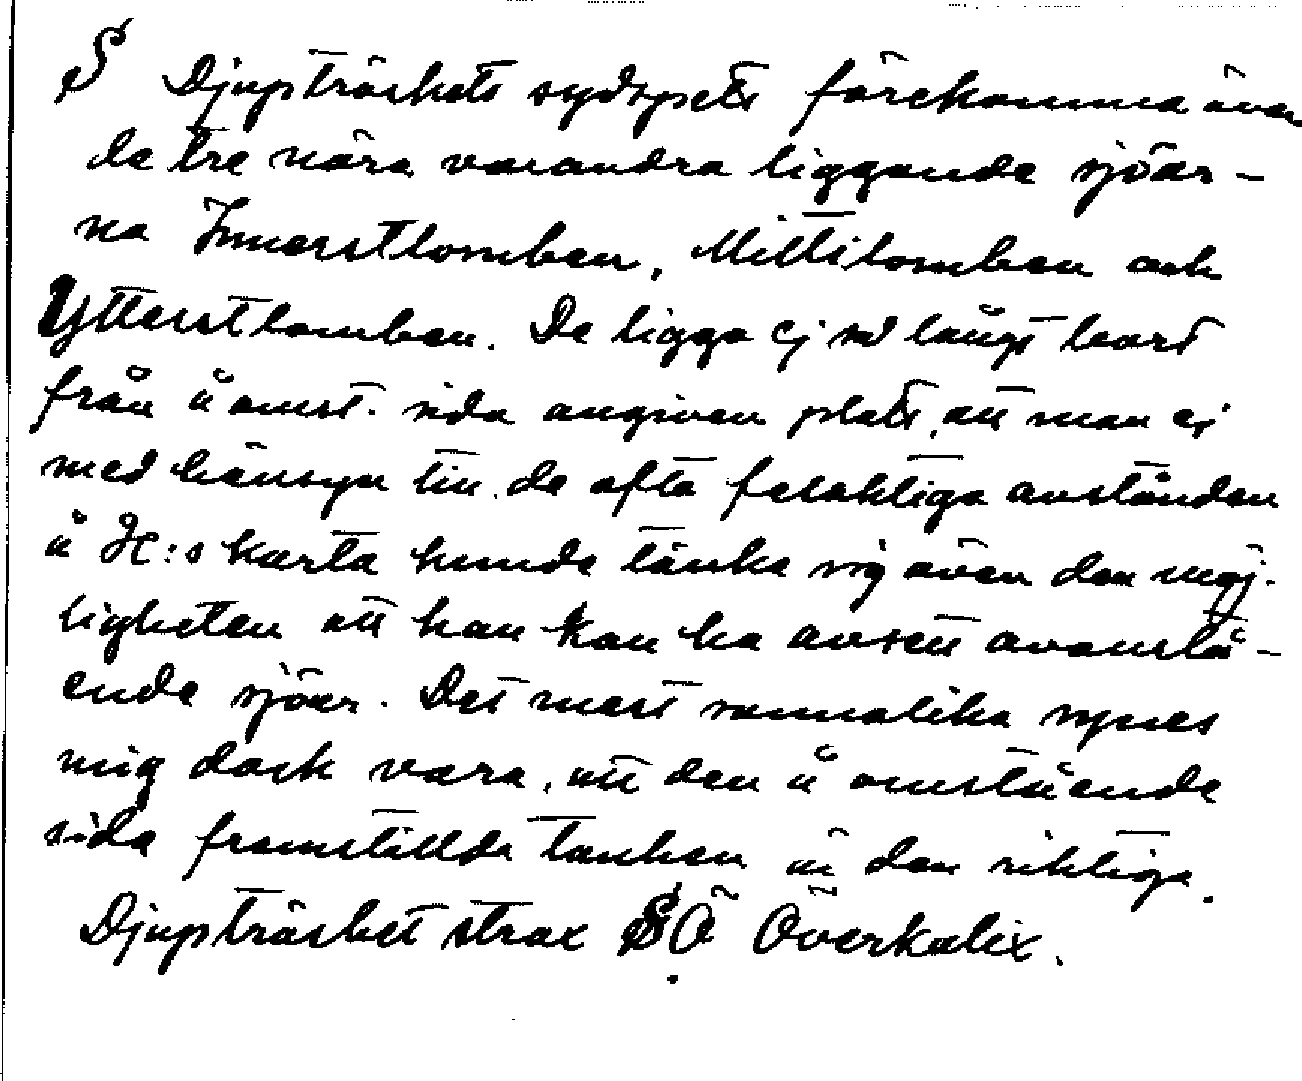 S Djupträskets sydspets förekomma även
de tre nära varandra liggande sjöar-
na Innerstlomben, Mittilomben och
Ytterstlomben. De ligga ej så långt bort
från å omst. sida angiven plats, att man ej
med hänsyn till de ofta felaktiga avstånden
å H:s karta kunde tänka sig även den möj-
ligheten att han kan ha avsett ovanstå-
ende sjöar. Det mest sannolika synes
mig dock vara, att den å omstående
sida framställda tanken är den riktiga.
Djupträsket strax SÖ Överkalix.